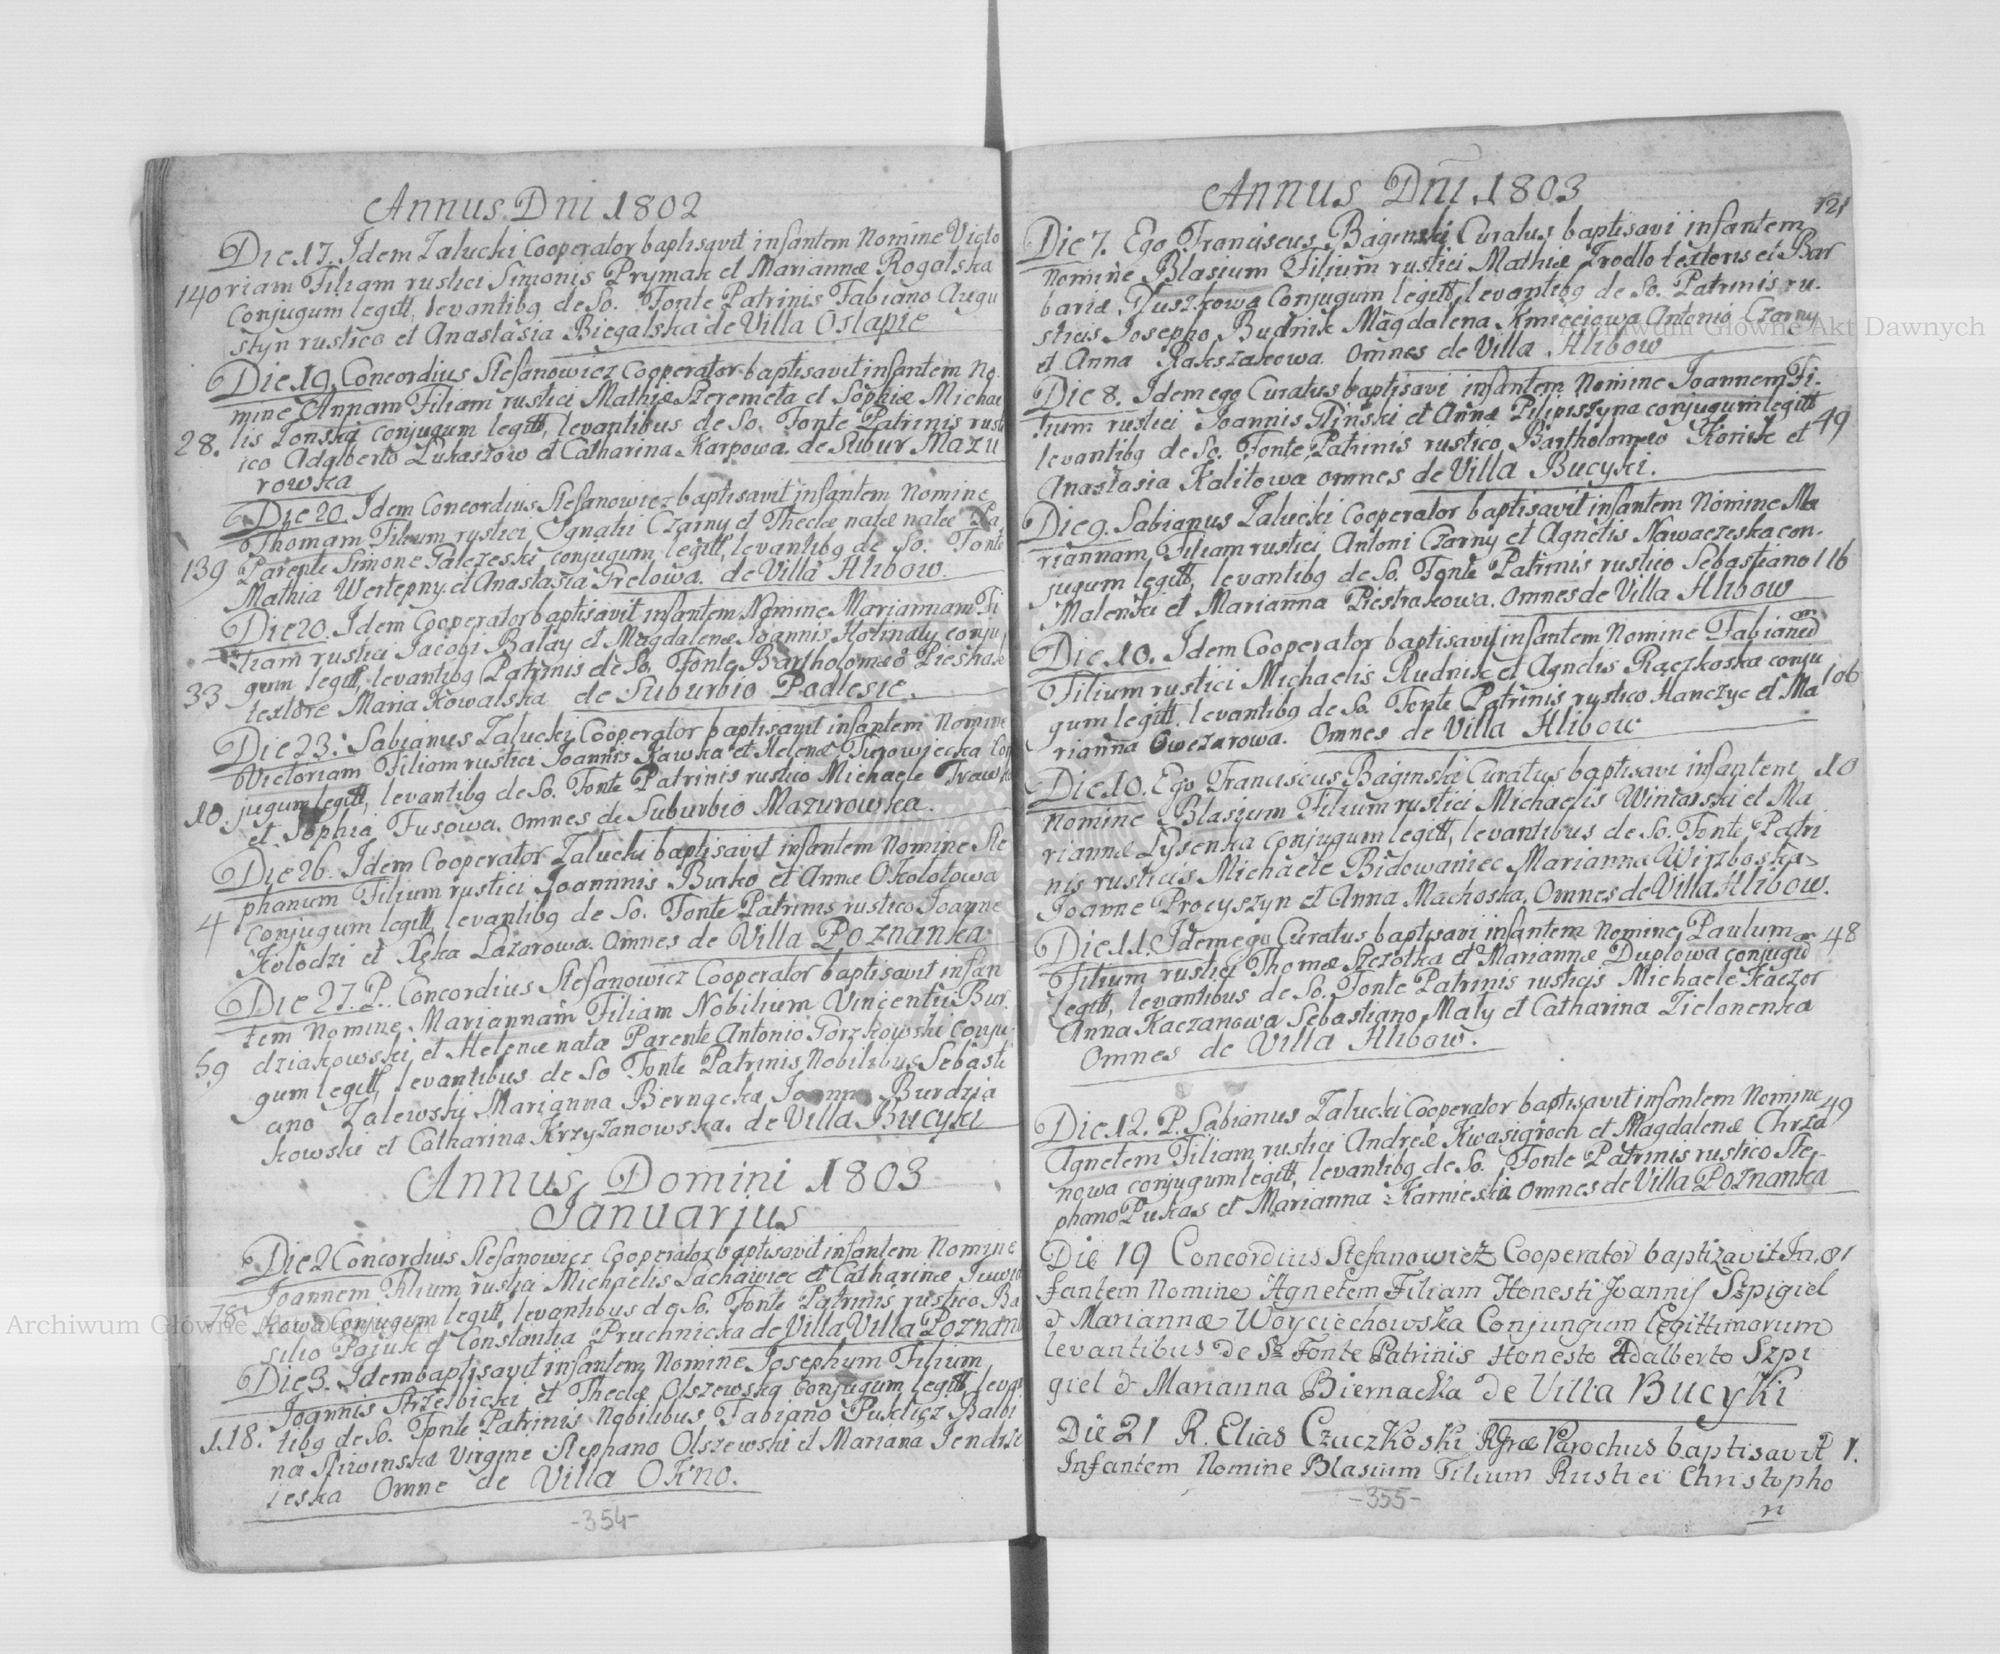 Annus Dni 1802
Die 17. Idem Zalucki Cooperator baptisavit infantem Nomine Victo
140 riam Filiam rustici Simonis Prymak et Mariannæ Rogalska
Conjugum legitt, levantibg de So. Fonte Patrinis Fabiano Augu
styn rustico et Anastasia Biegalska de Villa Ostapie
Die 19. Concordius Stefanowicz Cooperator baptisavit infantem No.
mine Annam Filiam rustici Mathiæ Szeremeta et Sophiæ Michae
28. lis Tonska conjugum legitt, levantibus de So. Fonte Patrinis rust
ico Adalberto Lukaszow et Catharina Karpowa. de Subur Mazu
rowka
Die 20. Idem Concordius Stefanowicz baptisavit infantem Nomine
Thomam Filium rustici Ignatii Czarny et Theclæ natæ natæ Pa
139 Parente Simone Palczeski conjugum legitt, levantibg de So. Fonte
Mathia Wertepny et Anastasia Frelowa. de Villa Hlibow.
Die 20. Idem Cooperator baptisavit infantem Nomine Mariannam Fi
liam rustici Jacobi Balay et Magdalenæ Joannis Hotinaty conju
33 gum legitt, levantibg Patrinis de So. Fonte Bartholomæo Piestrak
textore Maria Kowalska de Suburbio Podlesie.
Die 23. Sabianus Zalucki Cooperator baptisavit infantem Nomine
Victoriam Filiam rustici Joannis Kawka et Helenæ Turowiecka Con
10. jugum legitt, levantibg de So. Fonte Patrinis rustico Michaele Trawka
et Sophia Fusowa. omnes de Suburbio Mazurowka.
Die 26. Idem Cooperator Zalucki baptisavit infantem Nomine Ste
phanum Filium rustici Joannnis Burko et Annæ Okolotowa
4 Conjugum legitt, levantibg de So. Fonte Patrinis rustico Joanne
Kolodzi et Xęka Lazarowa. omnes de Villa Poznanka
Die 27. P. Concordius Stefanowicz Cooperator baptisavit infan
tem Nomine Mariannam Filiam Nobilium Vincentii Bur
59 dziakowski et Helenæ natæ Parente Antonio Gorzkowski Conju
gum legitt, levantibus de So Fonte Patrinis Nobilibus Sebasti
ano Zalewski Marianna Bernacka Burdzia
kowski et Catharina Krzyżanowska. de Villa Bucyki
Annus Domini 1803
Januarius
Die 2 Concordius Stefanowicz Cooperator baptisavit infantem Nomine
Joannem Filium rustici Michaelis Lachawiec et Catharinæ
78 kowa Conjugum legitt, levantibus de So. Fonte Patrinis rustico Ba
silio Pajuk et Constantia Pruchnicka de Villa Villa Poznank
Die 3. Idem baptisavit infantem Nomine Josephum Filium
Joannis Strzelbicki et Theclæ Olszewska Conjugum legitt, levan
118. tibg de So. Fonte Patrinis Nobilibus Fabiano Puklicz Balbi
na Sliwinska Virgine Stephano Olszewski et Mariana Jendrze
ieska Omne de Villa Okno.
-354-
Annus Dni 1803
121
Die 7. Ego Franciscus Baginski Curatus baptisavi infantem
Nomine Blasium Filium rustici Mathiæ Trodlo textoris et Bar
bariæ Gluszkowa Conjugum legitt, levantibg de So. Patrinis ru.
sticis Josepho Budnik Magdalena Kmieciowa Antonio Czarny
et Anna Rakszakowa. omnes de Villa Hlibow
Die 8. Idem ego Curatus baptisavi infantem Nomine Joannem Fi.
lium rustici Joannis Slinski et Annæ Pilipiszyna conjugum legitt 49
levantibg de So. Fonte Patrinis rustico Bartholomeo Konik et
Anastasia Kalitowa omnes de Villa Bucyki.
Die 9. Sabianus Zalucki Cooperator baptisavit infantem Nomine Ma
riannam Filiam rustici Antoni Czarny et Agnetis Nawaczeska con.
jugum legitt, levantibg de So. Fonte Patrinis rustico Sebastiano 116
Malenki et Marianna Piestrakowa. omnes de Villa Hlibow
Die 10. Idem Cooperator baptisavit infantem Nomine Fabianum
Filium rustici Michaelis Rudnik et Agnetis Rączkoska conju 106
gum legitt. levantibg de So. Fonte Patrinis rustico Hanczyc et Ma
rianna Owczarowa. omnes de Villa Hlibow
Die 10. Ego Franciscus Baginski Curatus baptisavi infantem 10
Nomine Blasium Filium rustici Michaelis Winiarski et Ma
riannæ Lysenka Conjugum legitt, levantibus de So. Fonte Patri
nis rusticus Michaele Bidowaniec Marianna Wirzboska
Joanne Procyszyn et Anna Machoska, Omnes de Villa Hlibow.
Die 11. Idem ego Curatus baptisavi infantem Nomine Paulum 48
Filium rustici Thomæ Szczotka et Mariannæ Duplowa conjugum
legitt, levantibus de So. Fonte Patrinis rusticis Michaele Kaczor
Anna Kaczanowa Sebastiano Maly et Catharina Zielonenka
Omnes de Villa Hlibow.
Die 12. P. Sabianus Zalucki Cooperator baptisavit infantem Nomine 49
Agnetem Filiam rustici Andreæ Kwasigroch et Magdalenæ Chrza
nowa conjugum legitt, levantibg de So. Fonte Patrinis rustico Ste.
phano Pukas et Marianna Karnieska omnes de Villa Poznanka
Die 19 Concordius Stefanowicz Cooperator baptizavit In, 81
fantem Nomine Agnetem Filiam Honesti Joannis Szpigiel
& Mariannæ Woyciechowska Conjungum Legittimorum
levantibus de So Fonte Patrinis Honesto Adalberto Szpi
giel & Marianna Biernacka de Villa Bucyki
Die 21 R. Elias Czaczkoski RGræ Parochus baptisavit 1.
Infantem Nomine Blasium Filium Rustici Christopho
ri
-355-
Archiwum Główne Akt Dawnych
Archiwum Główne Akt Dawnych